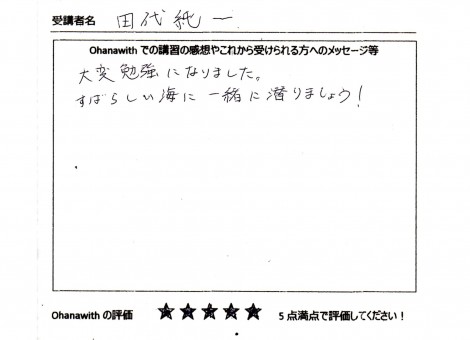 受講者名 田代純一
Ohanawith での講習の感想やこれから受けられる方へのメッセージ等
大変勉強になりました。
すばらしい海に一緒に潜りましょう!
Ohanawith の評価 ★★★★★ 5点満点で評価してください!